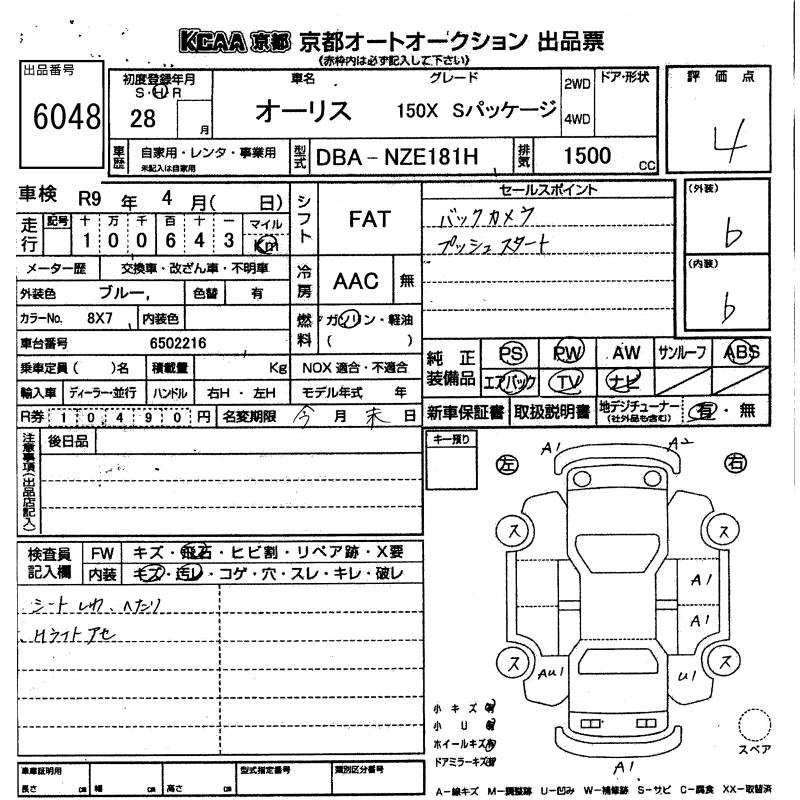 KCAA 京都 京都オートオークション 出品票
《赤枠内は必ず記入して下さい》
出品番号
6048
初度登録年月
S・H・R
28
月
車名
オーリス
グレード
150X Sパッケージ
2WD
4WD
ドア・形状
評価点
4
車歴
自家用・レンタ・事業用
未記入は自家用
型式
DBA-NZE181H
排気
1500
CC
車検
R9 年 4 月( 日)
走行
記号
十 万 千 百 十 一
1 0 0 6 4 3
マイル
Km
メーター歴
交換車・改ざん車・不明車
外装色
ブルー,
色替
有
カラーNo.
8X7
内装色
車台番号
6502216
乗車定員( )名
積載量
Kg
輸入車
ディーラー・並行
ハンドル
右H・左H
R券
1 0 4 9 0 円
名変期限
今 月 末 日
シフト
FAT
冷房
AAC
無
燃料
ガソリン・軽油
( )
NOX 適合・不適合
モデル年式 年
セールスポイント
バックカメラ
プッシュスタート
(外装)
b
(内装)
b
純正装備品
PS
PW
AW
サンルーフ
ABS
エアバック
TV
ナビ
新車保証書
取扱説明書
地デジチューナー
(社外品も含む)
有・無
注意事項(出品店記入)
後日品
検査員記入欄
FW
キズ・飛石・ヒビ割・リペア跡・X要
内装
キズ・汚レ・コゲ・穴・スレ・キレ・破レ
シート しわ、へたり
Hライト アセ
キー預り
左
右
A1
A2
ス
ス
A1
A1
ス
ス
AU1
U1
A1
小キズ有
小U有
ホイールキズ有
ドアミラーキズ有
スペア
車庫証明用
長さ cm
幅 cm
高さ cm
型式指定番号
類別区分番号
A-線キズ M-調整跡 U-凹み W-補修跡 S-サビ C-腐食 XX-取替済